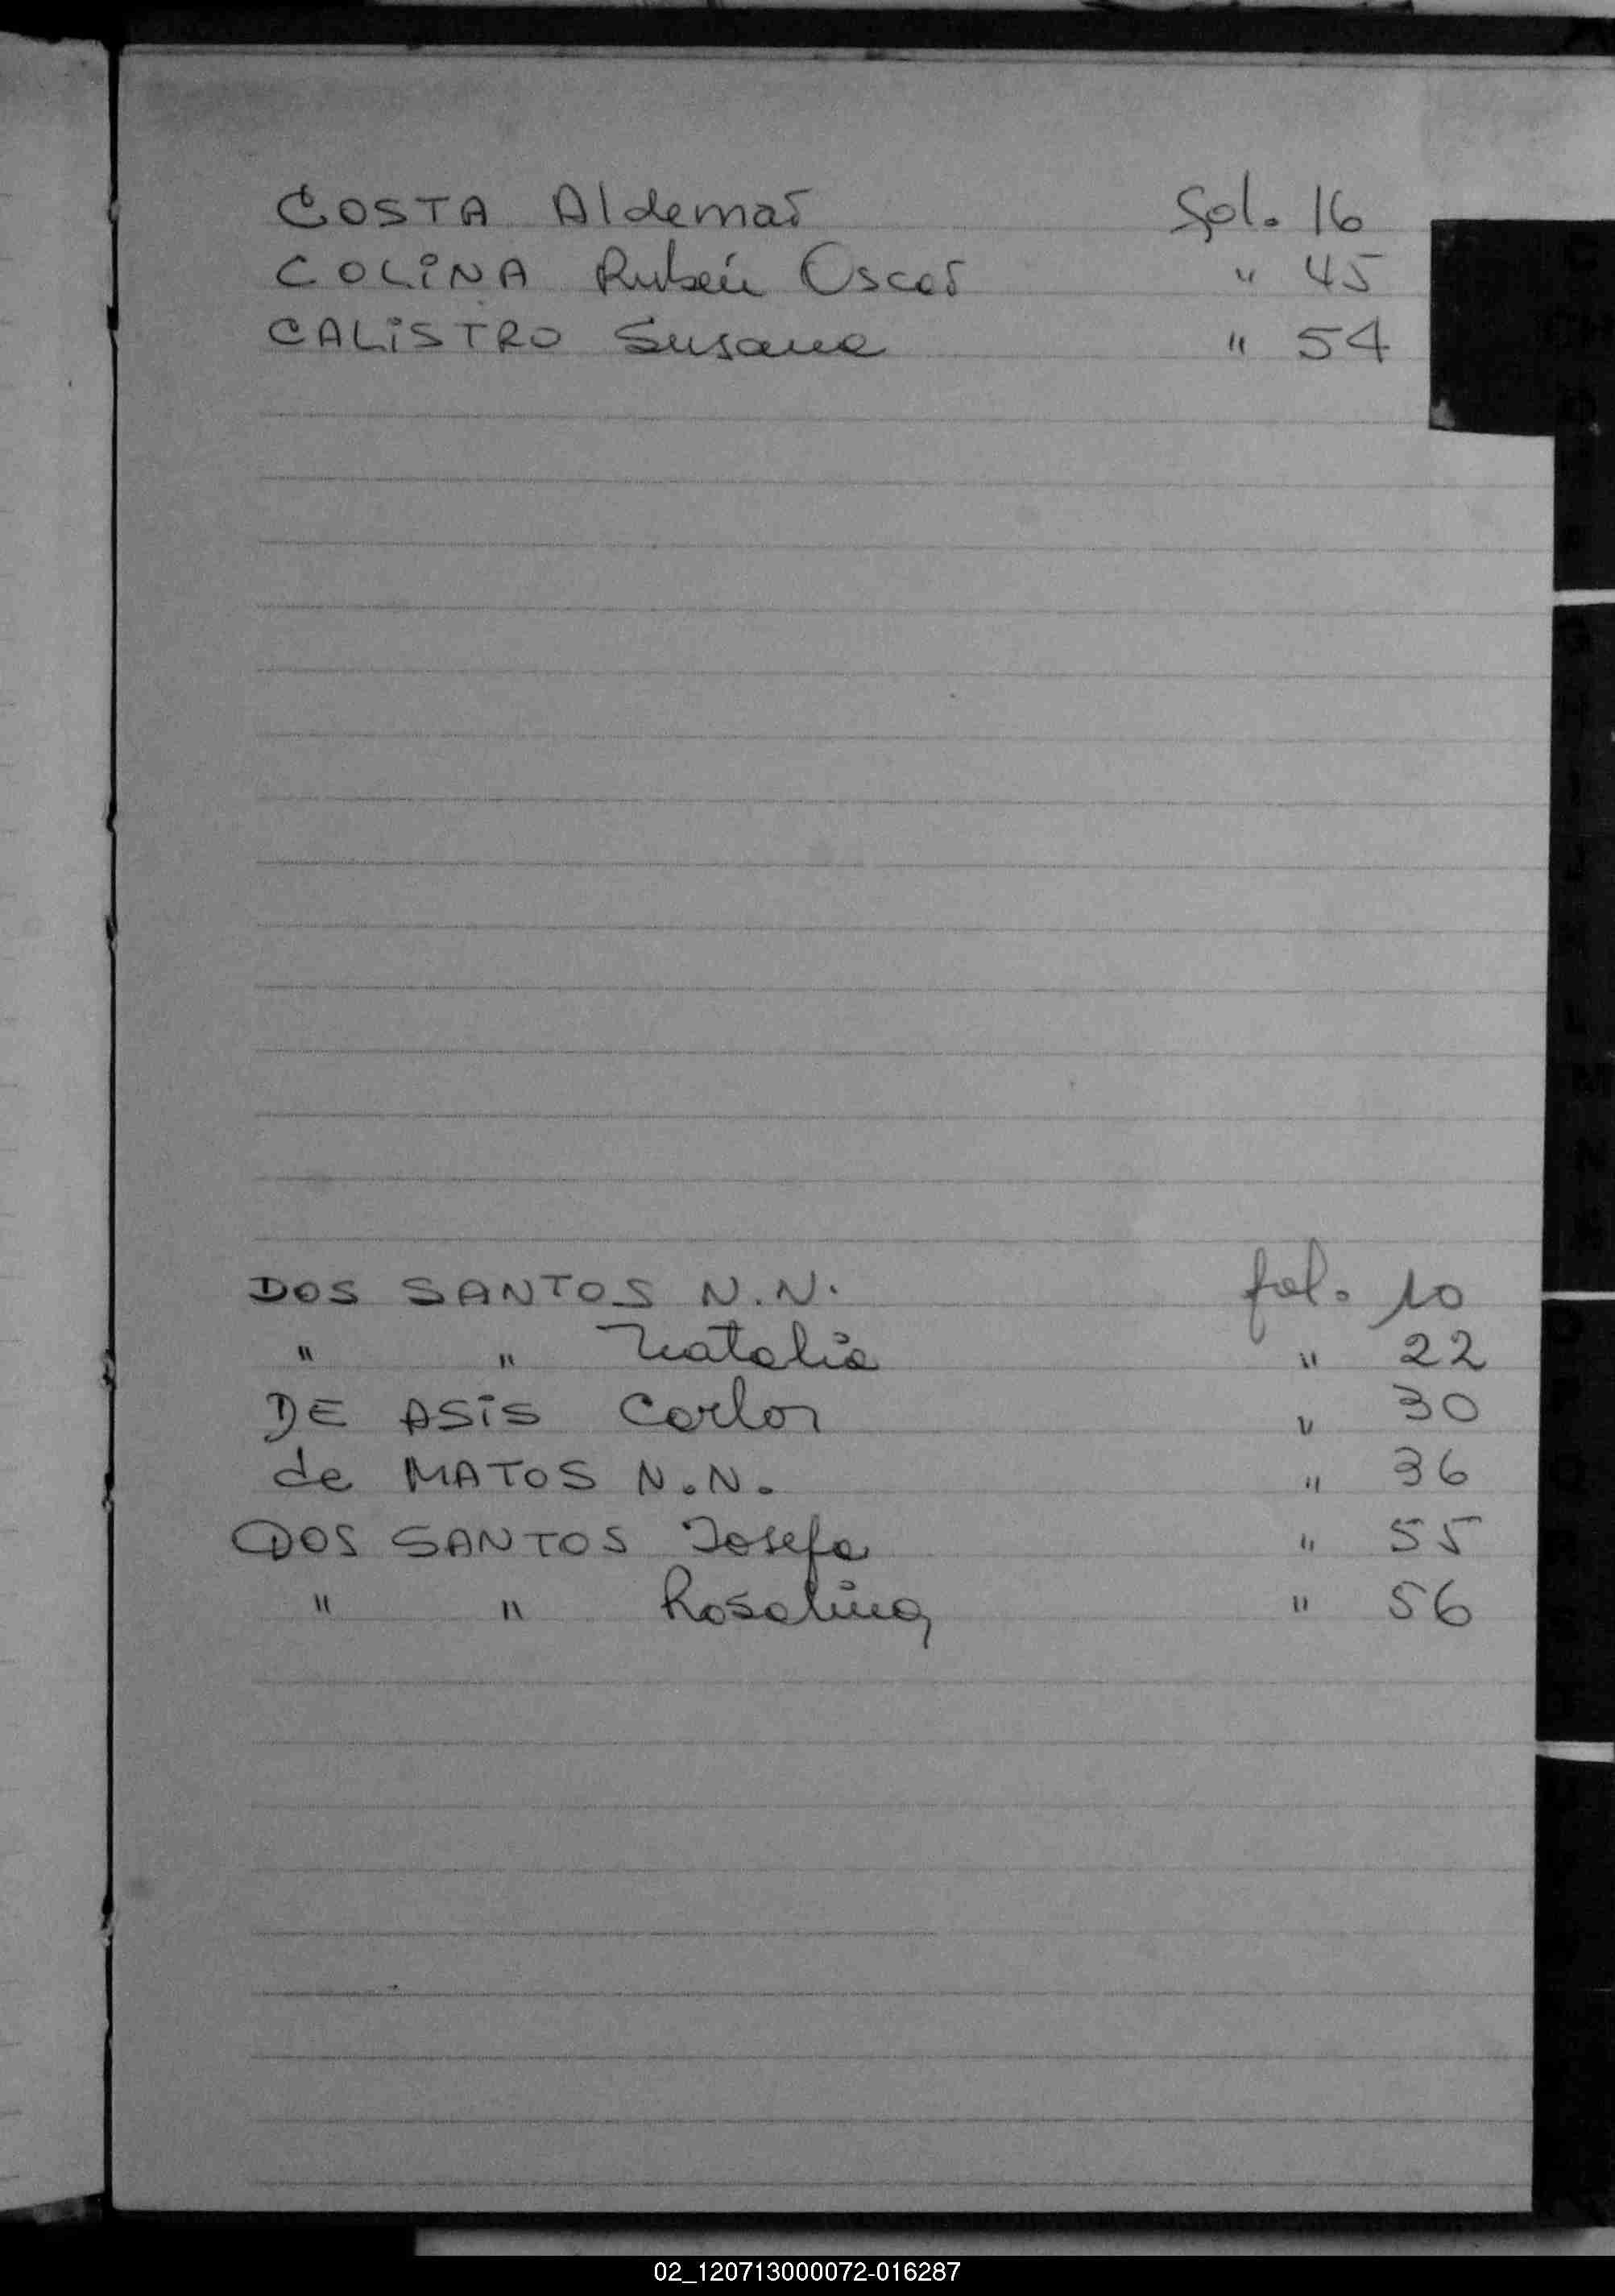 COSTA Aldemar fol. 16
COLINA Rubén Oscar " 45
CALISTRO Susana " 54
DOS SANTOS N.N. fol. 10
" " Natalia " 22
DE ASIS Carlos " 30
de MATOS N.N. " 36
DOS SANTOS Josefa " 55
" " Rosalina " 56
02_120713000072-016287